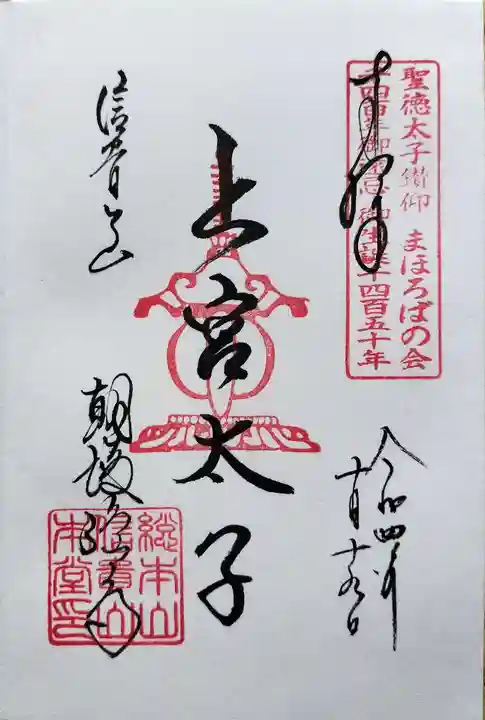 聖徳太子讃仰 まほろばの会
千四百年御遠忌 御生誕千四百五十年
奉拝
上宮太子
令和四年
十月十六日
信貴山
朝護孫子寺
総本山
信貴山
本堂印